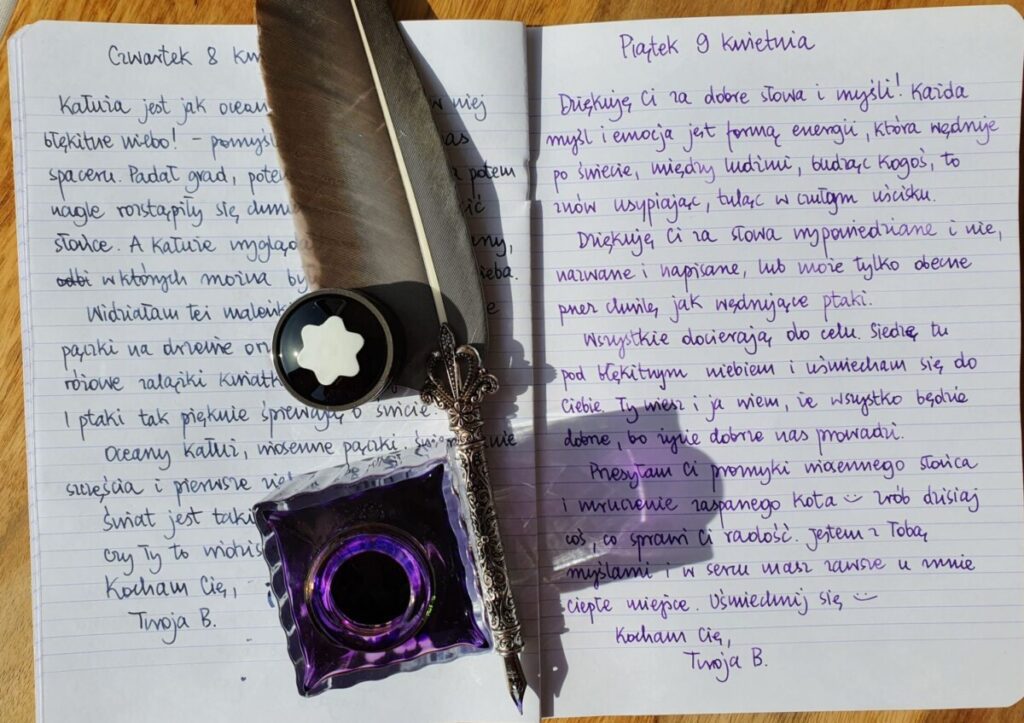 Czwartek 8
Kałuża jest jak ocean w niej
błękitne niebo! – pomyśl
spaceru. Padał grad, potem
nagle rozstąpiły się
słońce. A kałuże
odbi w których można
Widziałam też
pączki na drzewie
różowe zalążki
I ptaki tak pięknie śpiewają o świcie!
Oceany kałuż, wiosenne pączki,
szczęścia i pierwsze
Świat jest taki
czy Ty to
Kocham Cię,
Twoja B.
Piątek 9 kwietnia
Dziękuję Ci za dobre słowa i myśli! Każda
myśl i emocja jest formą energii, która wędruje
po świecie, między ludźmi, budząc kogoś, to
znów usypiając, tuląc w czułym uścisku.
Dziękuję Ci za słowa wypowiedziane i nie,
nazwane i napisane, lub może tylko obecne
przez chwilę jak wędrujące ptaki.
Wszystkie docierają do celu. Siedzę tu
pod błękitnym niebiem i uśmiecham się do
Ciebie. Ty wiesz i ja wiem, że wszystko będzie
dobrze, bo życie dobrze nas prowadzi.
Przesyłam Ci promyki wiosennego słońca
i mruczenie zaspanego kota zrób dzisiaj
coś, co sprawi Ci radość. Jestem z Tobą
myślami i w sercu masz zawsze u mnie
ciepłe miejsce. Uśmiechnij się
Kocham Cię,
Twoja B.